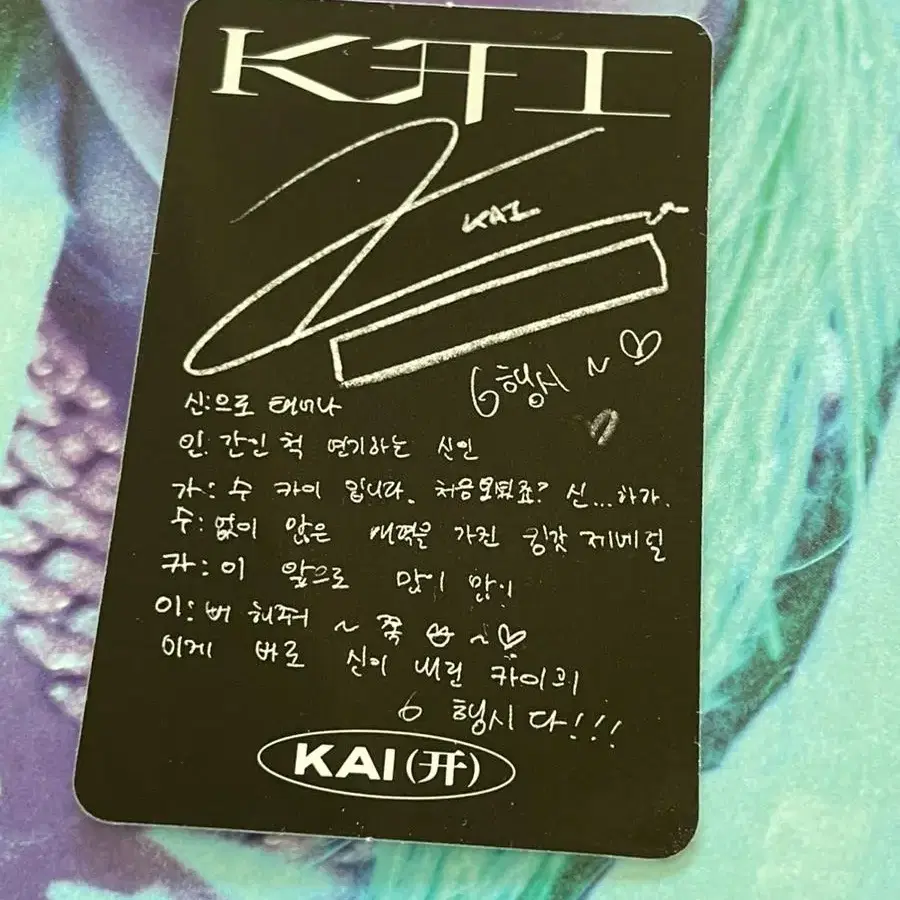 K开I
KAI
6행시 ~ ♡
신:으로 태어나
인: 간인 척 연기하는 신인
가: 수 카이 입니다. 신...하가.
수:없이 많은 매력을 가진 킹갓 제네럴
카:이 앞으로 많이 많이
이:뻐 해줘 ~ 쪽 ~♡
이게 바로 신이 내린 카이의
6 행시다!!!
KAI(开)